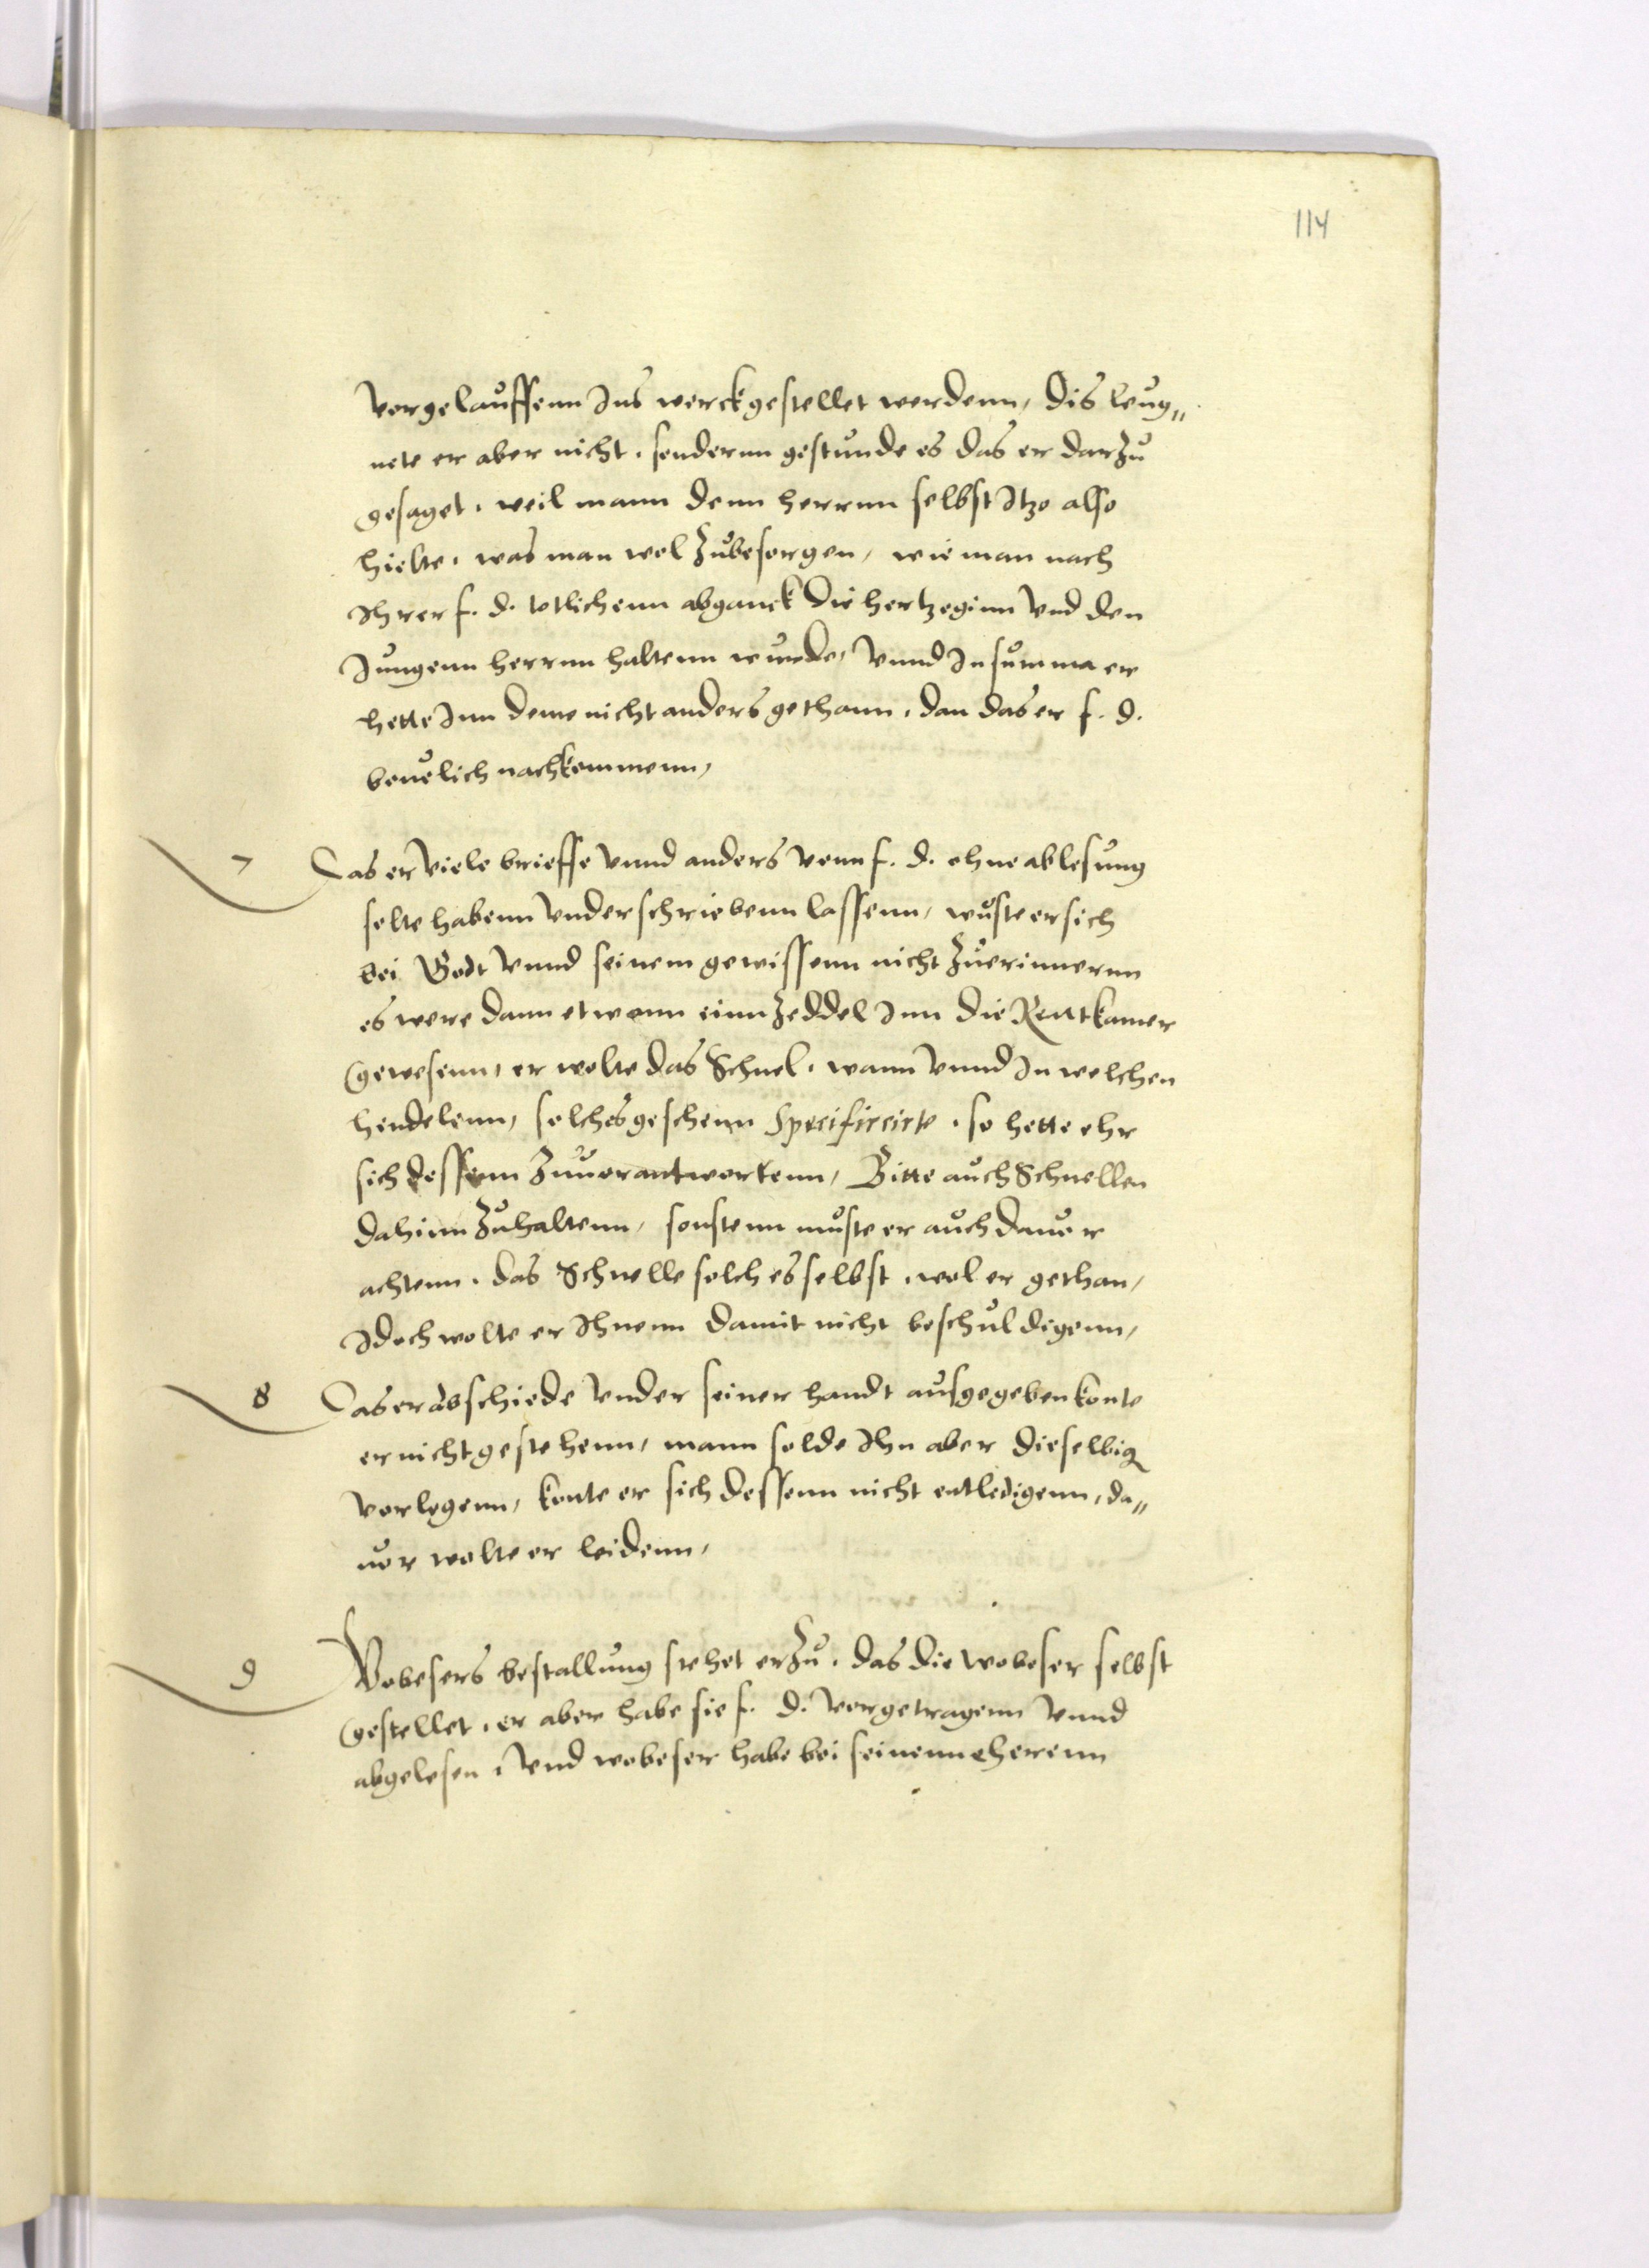 114
vorgelauffenn Ins werck gestellet werdenn, dis leug„
nete er aber nicht, sondernn gestunde es das er darzu
gesaget, weil mann denn herrnn selbst Itzo also
hielte, was man wol zubesorgen, wie man nach
Ihrer f. d. totlichenn abganck die hertzoginn vnd den
Jungenn herrnn haltenn wurde, vnnd In summa er
hette Inn deme nicht anders gethann, dan das er f. d.
beuelich nachkommenn,
7 Das er viele brieffe vnnd anders vonn f. d. ohne ablesung
solte habenn vnderschriebenn lassenn, wuste er sich
bei Godt vnnd seinem gewissenn nicht zuerinnernn
es were dann etwann einn zeddel Inn die Rentkamer
gewesenn, er wolte das Schnel, wann vnnd In welchen
hendelenn, solches geschenn Specificirte, so hette ehr
sich dessenn zuuorantwortenn, Bitte auch Schnellen
dahinn zuhaltenn, sonstenn muste er auch dauor
achtenn, das Schnelle solches selbst, wol er gethan,
Idoch wolte er Ihnenn damit nicht beschuldigenn,
8 Das er abschiede vnder seiner handt ausgegeben konte
er nicht gestehenn, mann solde Ihn aber dieselbig
vorlegenn, konte er sich dessenn nicht entledigenn, da„
uor wolte er leidenn,
9 Wobesers bestallung stehet er zu, das die wobeser selbst
gestellet, er aber habe sie f. d. vorgetragenn vnnd
abgelesen, vnd wobeser habe bei seinenn eherenn